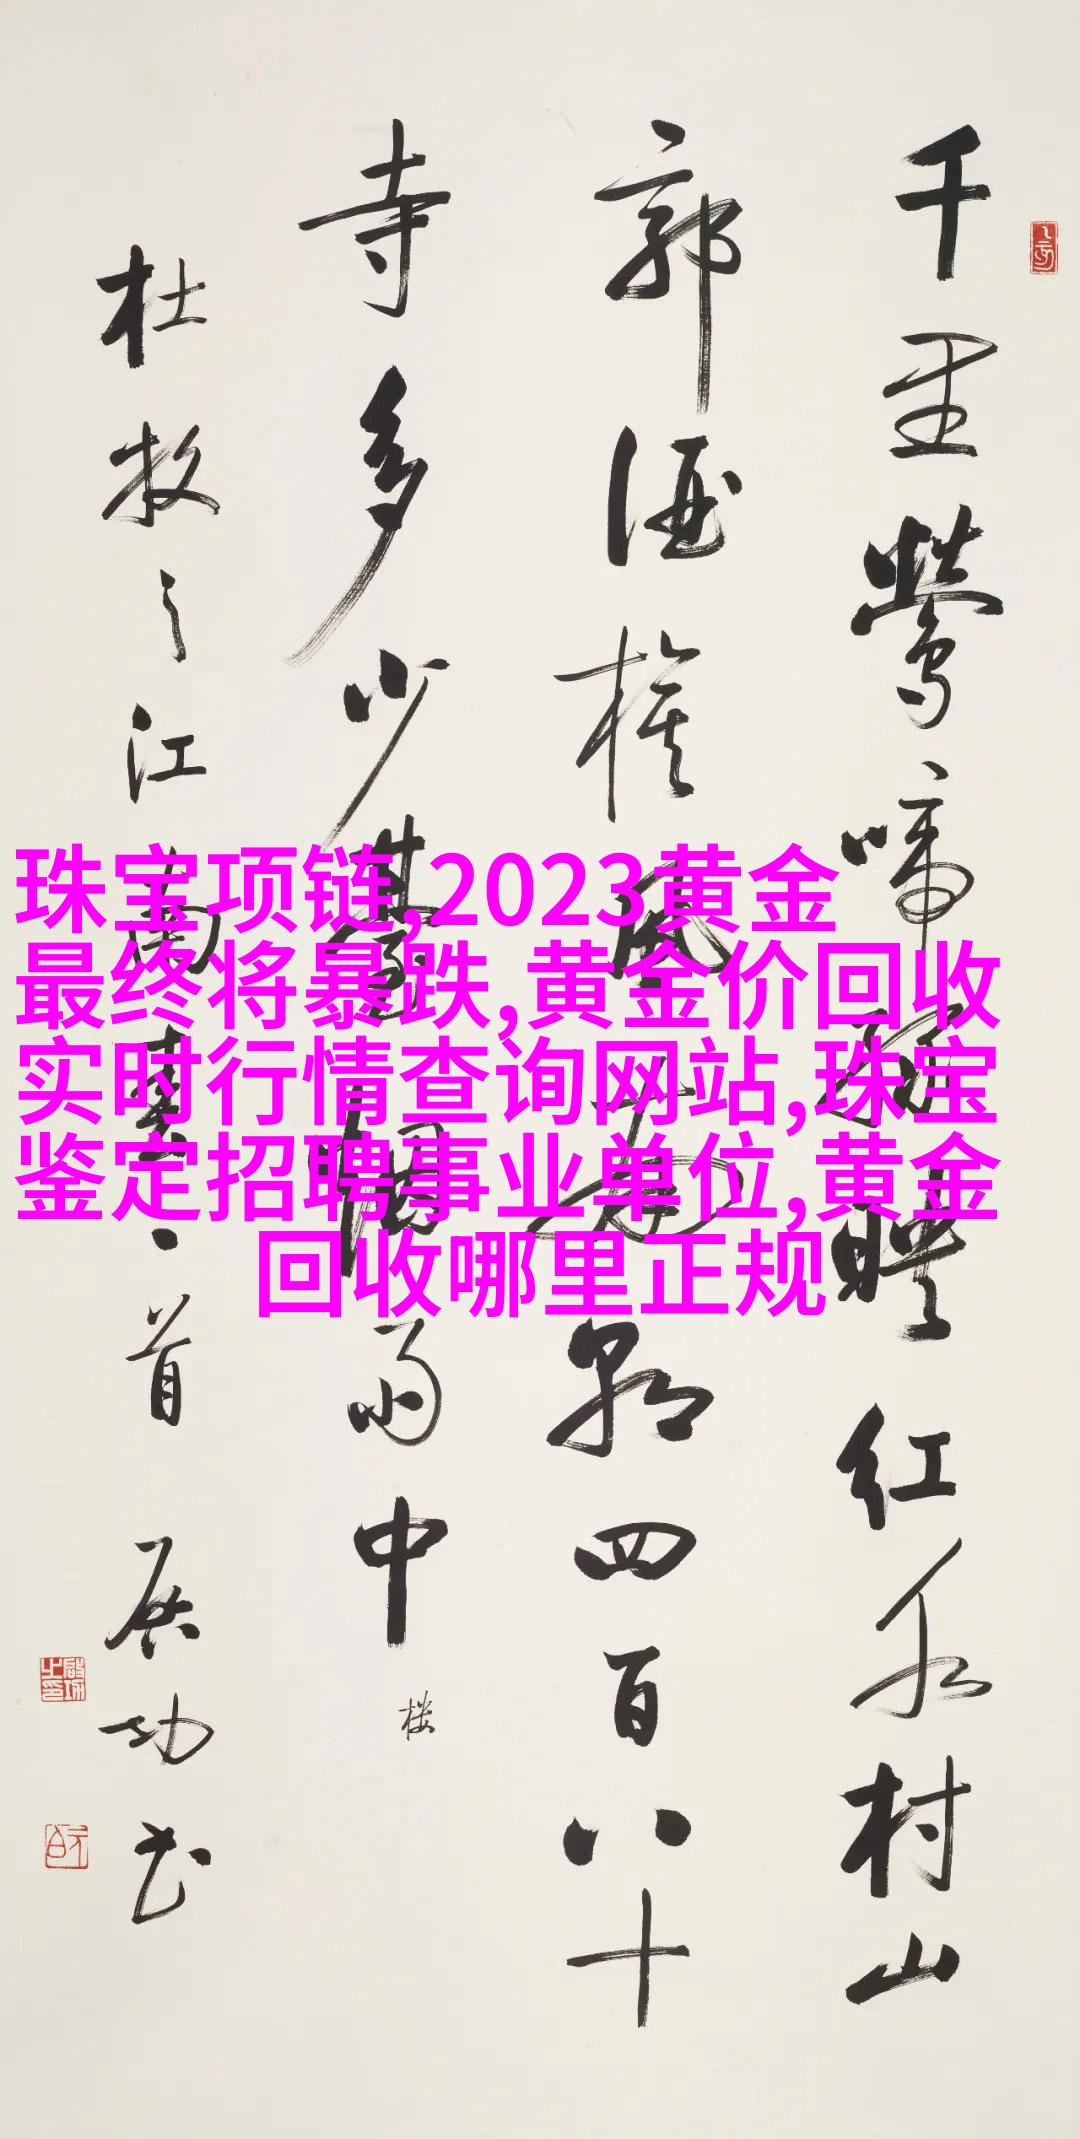 千里鶯啼綠映红水村山
郭酒旗風南朝四百八十
寺多少臺烟雨中
楼
杜牧之江南春一首
启功书
珠宝项链,2023黄金
最终将暴跌,黄金价回收
实时行情查询网站,珠宝
鉴定招聘事业单位,黄金
回收哪里正规